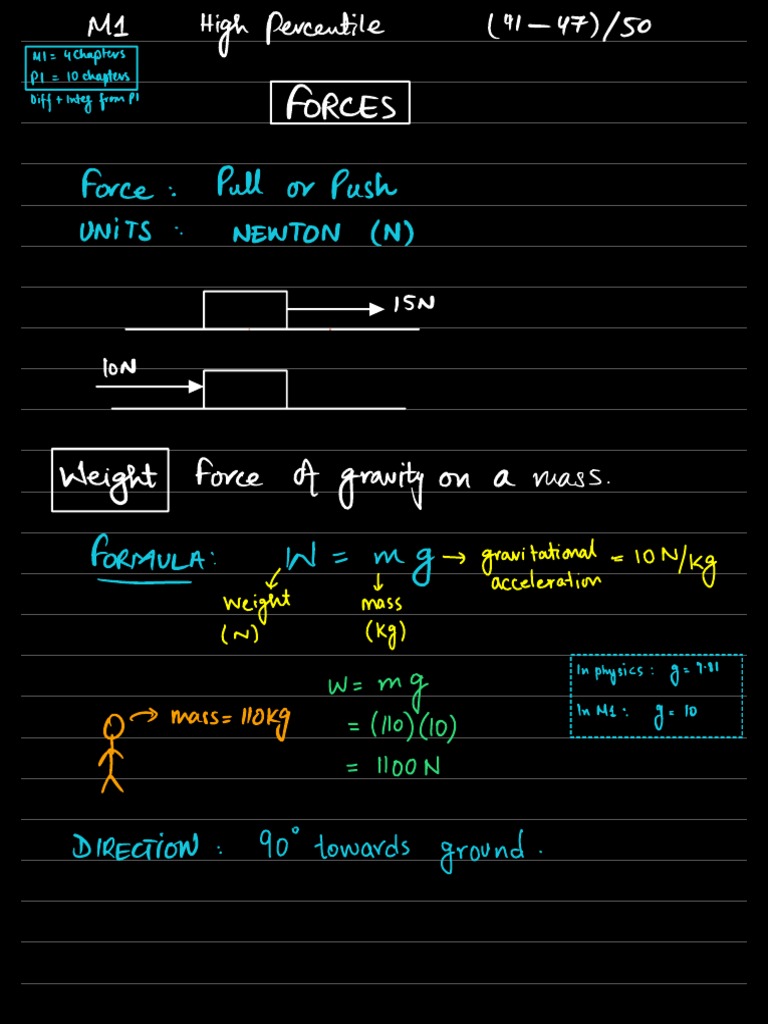 M1 High Percentile (41 – 47)/50
M1 = 4 Chapters
P1 = 10 chapters
Diff + Integ from P1
FORCES
Force : Pull or Push
UNITS : NEWTON (N)
15N
10N
Weight Force of gravity on a mass.
FORMULA: W = m g → gravitational acceleration = 10 N/kg
weight (N)
mass (kg)
In physics : g = 9.81
In M1 : g = 10
W = m g
→ mass = 110kg
= (110)(10)
= 1100 N
DIRECTION : 90° towards ground.